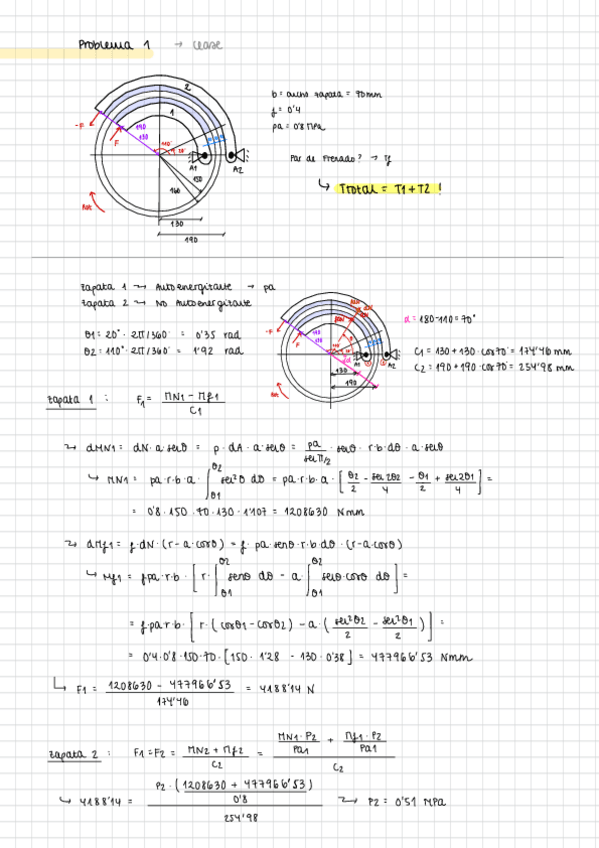 Problema 1 → clase
b = ancho zapata = 70mm
f = 0'4
pa = 0'8 MPa
Par de Frenado? → Tf
↳ Ttotal = T1 + T2 !
-F
F
2
1
190
130
110°
20°
A1
A2
150
160
Rot
130
190
zapata 1 → Autoenergizante → pa
zapata 2 → No Autoenergizante
θ1 = 20° · 2π/360 = 0'35 rad
θ2 = 110° · 2π/360 = 1'92 rad
-F
F
A1
A2
130
190
Rot
α = 180-110 = 70°
C1 = 130 + 130 · cos70 = 174'46 mm
C2 = 190 + 190 · cos70 = 254'98 mm
zapata 1 : F1 = MN1 - Mf1 / C1
↝ dMN1 = dN · a · senθ = p · dA · a · senθ = pa / sen π/2 · senθ · r · b · dθ · a · senθ
↳ MN1 = pa · r · b · a · ∫θ1 θ2 sen²θ dθ = pa · r · b · a · [ θ2/2 - sen2θ2/4 - θ1/2 + sen2θ1/4 ] =
= 0'8 · 150 · 70 · 130 · 1'107 = 1208630 Nmm
↝ dMf1 = f · dN · (r - a · cosθ) = f · pa · senθ · r · b · dθ · (r - a · cosθ)
↳ Mf1 = f · pa · r · b · [ r · ∫θ1 θ2 senθ dθ - a · ∫θ1 θ2 senθ · cosθ dθ ] =
= f · pa · r · b · [ r · (cosθ1 - cosθ2) - a · ( sen²θ2/2 - sen²θ1/2 ) ] =
= 0'4 · 0'8 · 150 · 70 · [150 · 1'28 - 130 · 0'38] = 477966'53 Nmm
↳ F1 = 1208630 - 477966'53 / 174'46 = 4188'14 N
zapata 2 : F1 = F2 = MN2 + Mf2 / C2 = MN1 · P2 / Pa1 + Mf1 · P2 / Pa1 / C2
↳ 4188'14 = P2 · ( 1208630 + 477966'53 ) / 0'8 / 254'98 ↝ P2 = 0'51 MPa